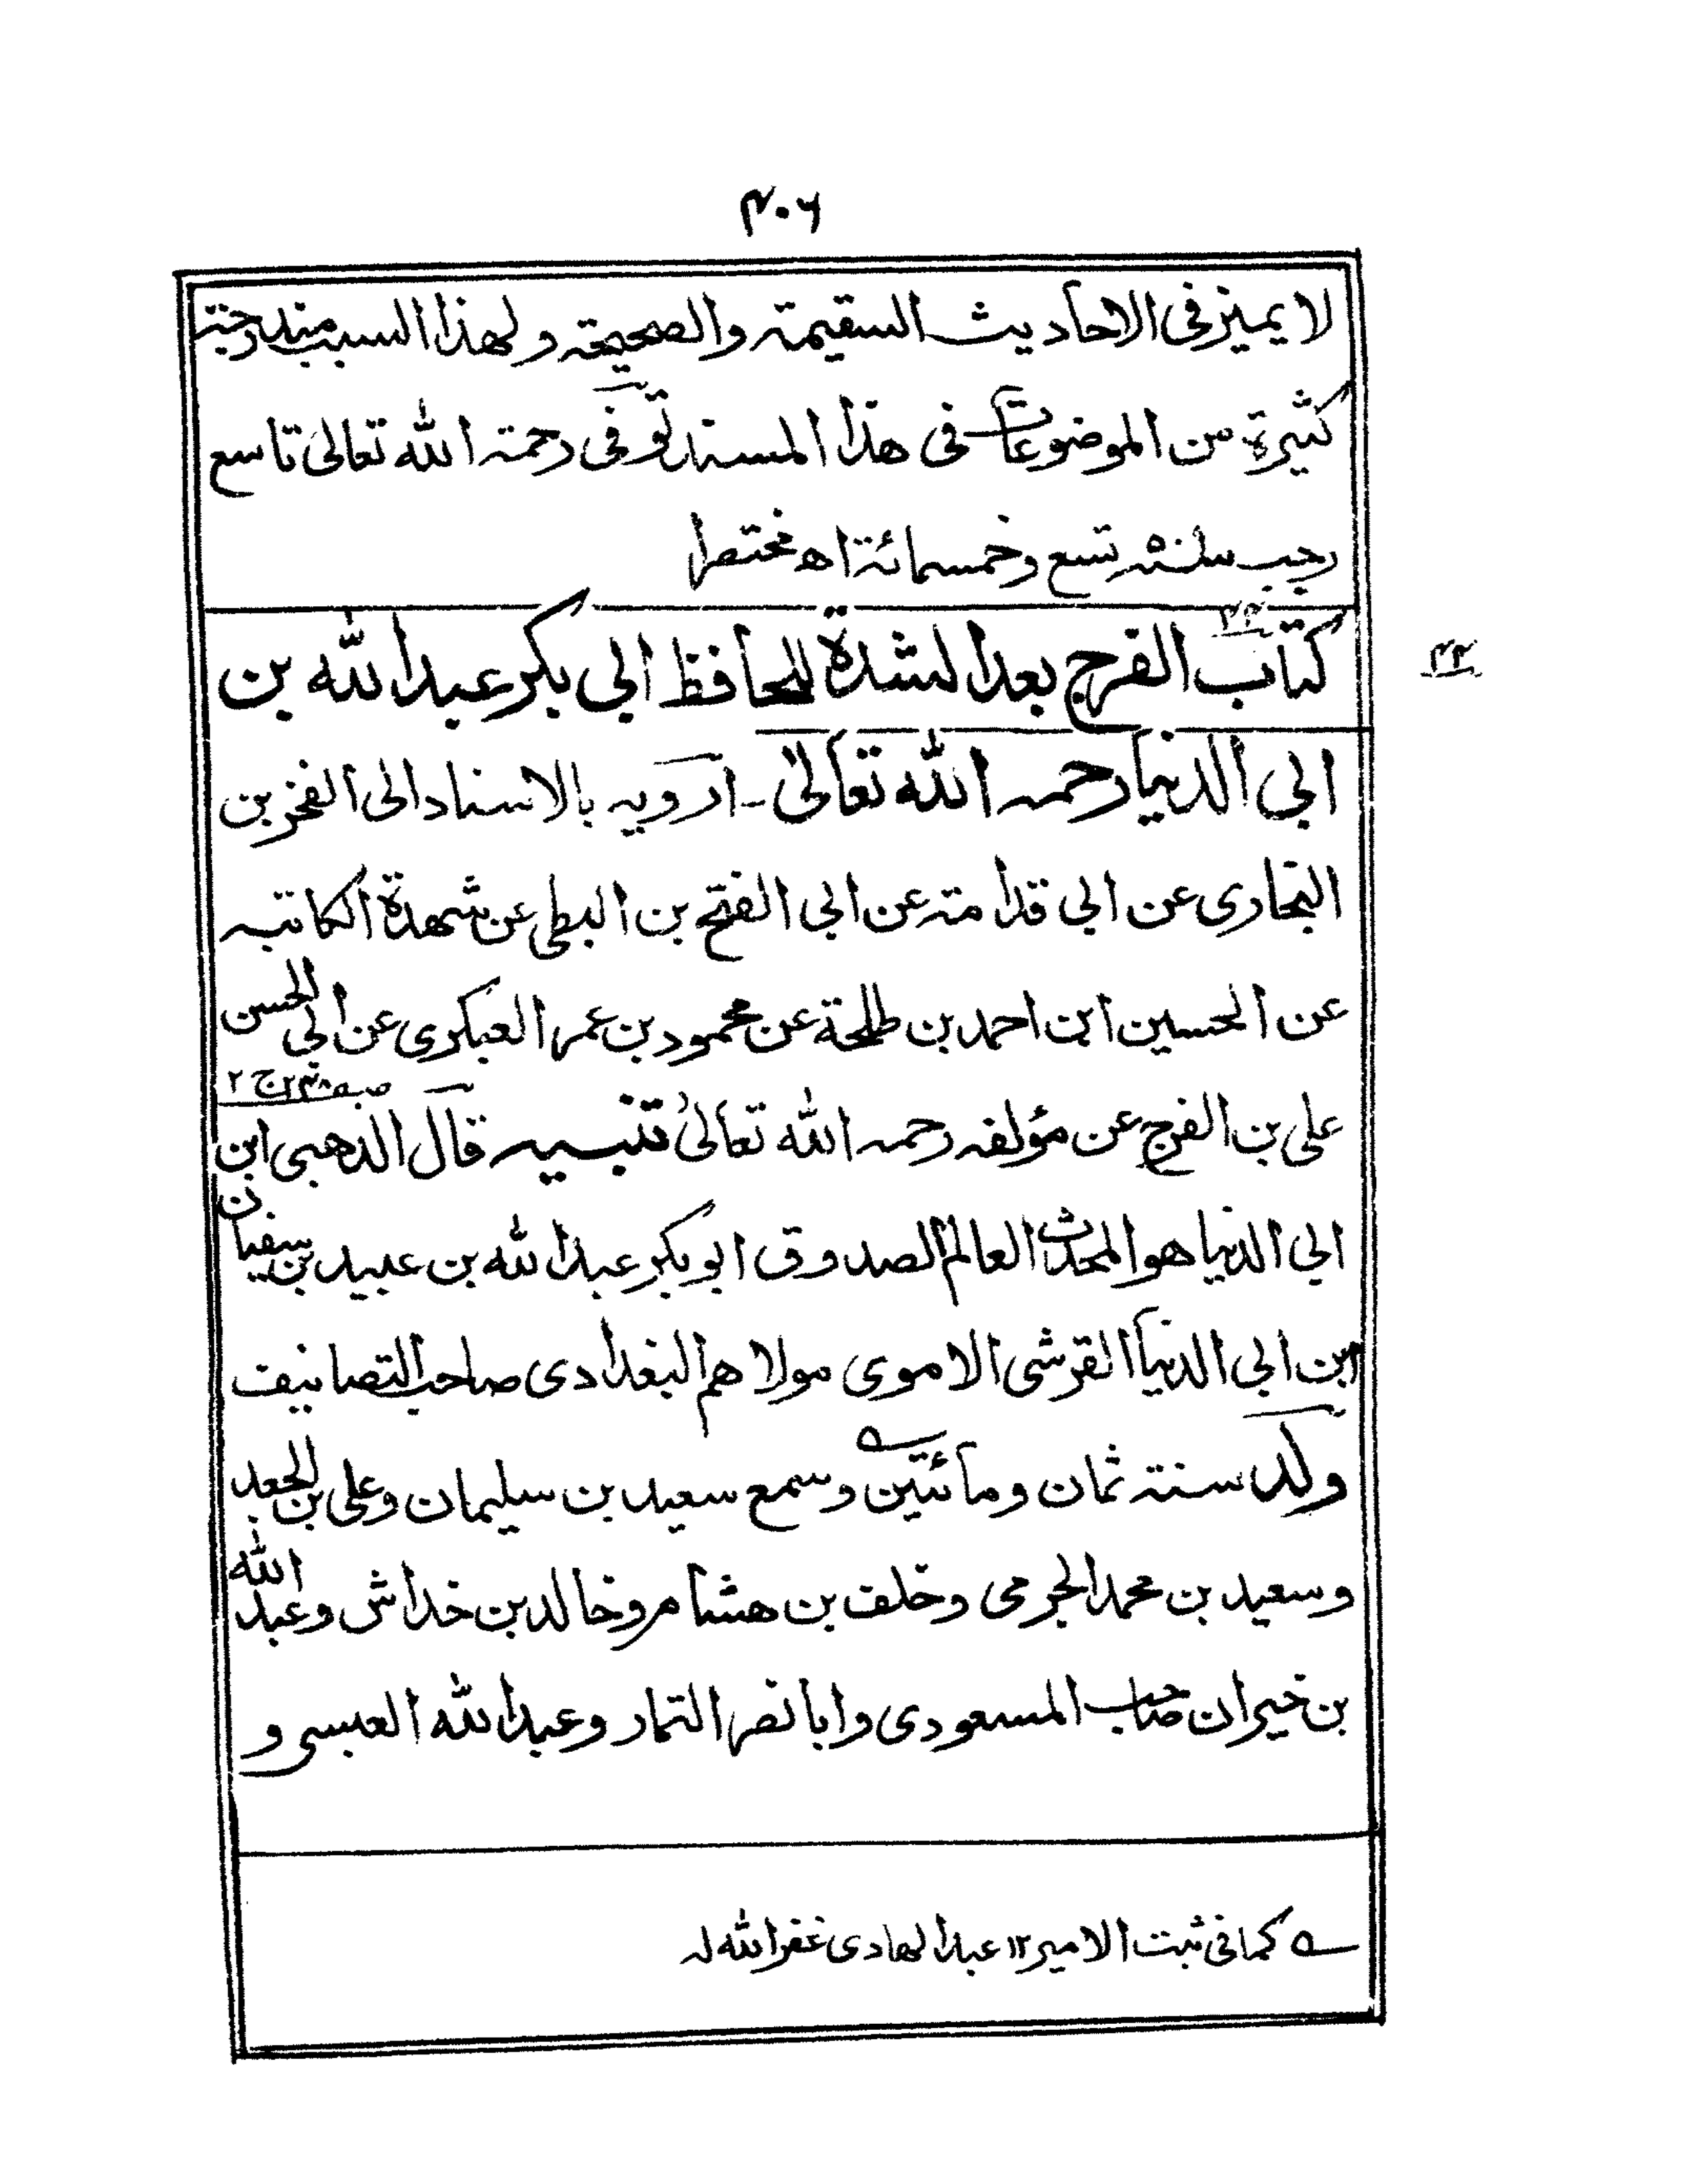 ٤٠٦
لا يميز فى الاحاديث السقيمة والصحيحة ولهذا السبب مندرجة
كثيرة من الموضوعات فى هذا المسند توفى رحمة الله تعالى تاسع
رجب سنة تسع وخمسمائة اھ مختصرا
٤٢
كتاب الفرج بعد الشدة للحافظ ابى بكر عبد الله بن
ابى الدنيا رحمه الله تعالى - ارويه بالاسناد الى الفخر بن
البخارى عن ابى قدامة عن ابى الفتح بن البطى عن شهدة الكاتبه
عن الحسين ابن احمد بن طلحة عن محمود بن عمر العبكرى عن ابى الحسن
على بن الفرج عن مؤلفه رحمه الله تعالى تنبيه قال الذهبى ابن
ابى الدنيا هو المحدث العالم الصدوق ابو بكر عبد الله بن عبيد بن سفيان
ابن ابى الدنيا القرشى الاموى مولاهم البغدادى صاحب التصانيف
ولد سنة ثمان ومائتين وسمع سعيد بن سليمان وعلى بن الجعد
وسعيد بن محمد الجرمى وخلف بن هشام وخالد بن خداش وعبد الله
بن خيران صاحب المسعودى وابا نصر التمار وعبد الله العبسى و
ے كما فى ثبت الامير ١٢ عبد الهادى غفر الله له